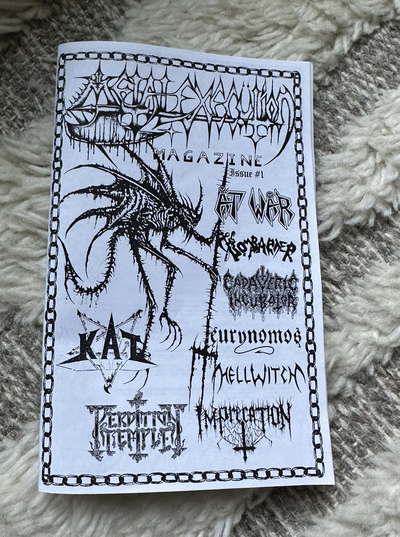 METAL EXECUTION
MAGAZINE
Issue #1
AT WAR
CROSSBARNER
CADAVERIC
INCUBATOR
eurynomos
KAT
HELLWITCH
PERDITION
TEMPLE
IMPRECATION